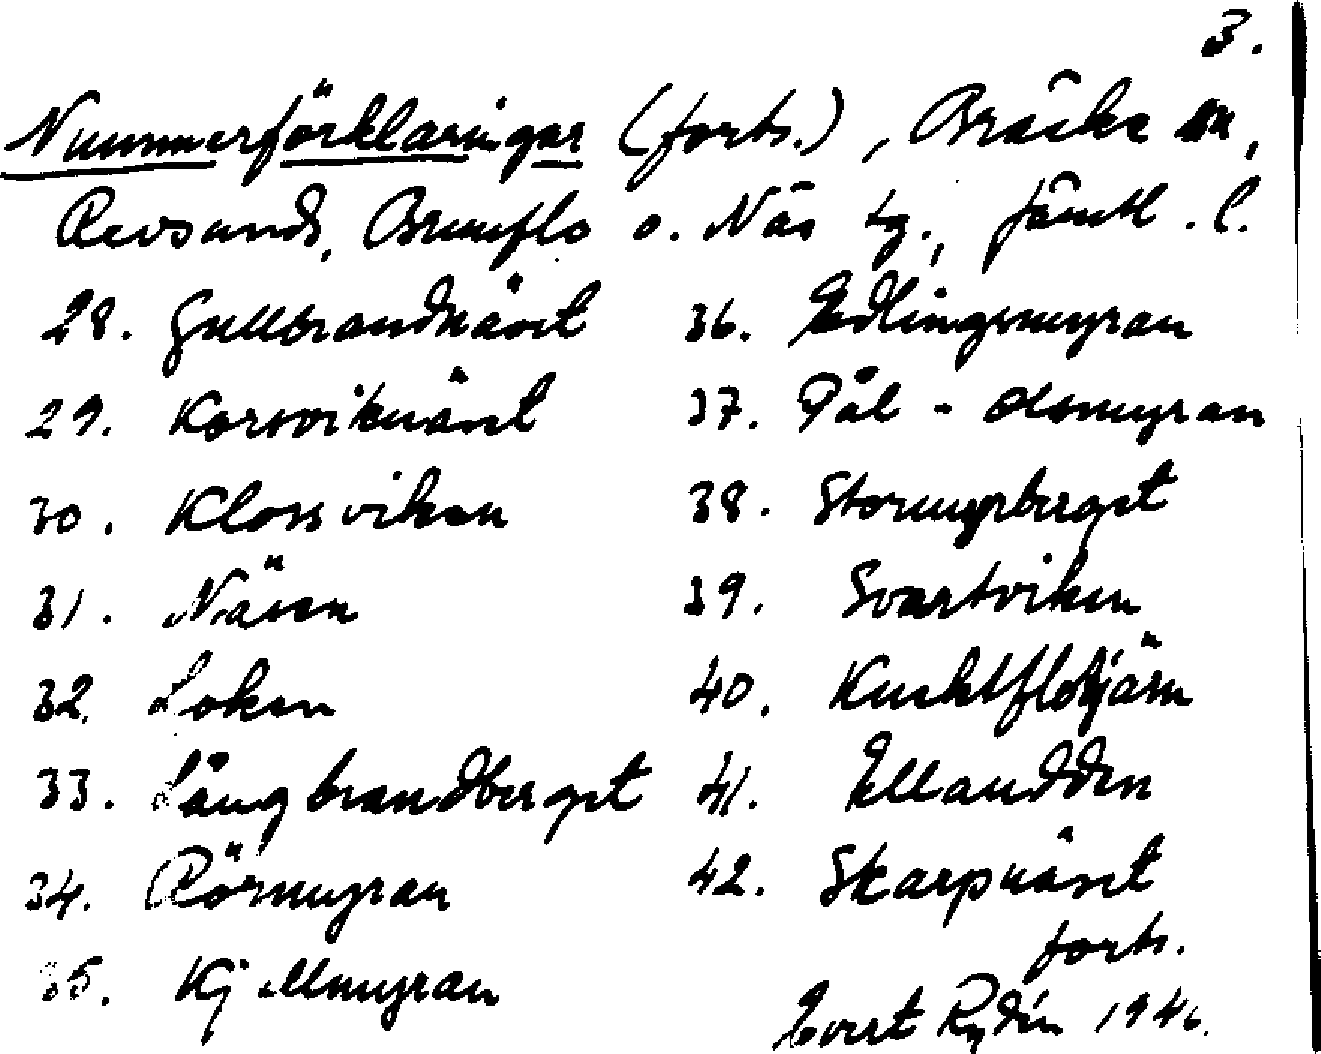 3.
Nummerförklaringar (forts.), Bräcke
Revsunds, Brunflo o. Näs tg., Jämtl. l.
28. Gullbrandnäset
29. Korsviknäset
30. Klossviken
31. Näsen
32. Loken
33. Långbrandberget
34. Rörmyran
35. Kjellmyran
36. Edlingsmyran
37. Pål-Olsmyran
38. Stormyrberget
39. Svartviken
40. Kuckelflotjärn
41. Ellaudden
42. Skarpnäset
forts.
Evert Rydén 1946.